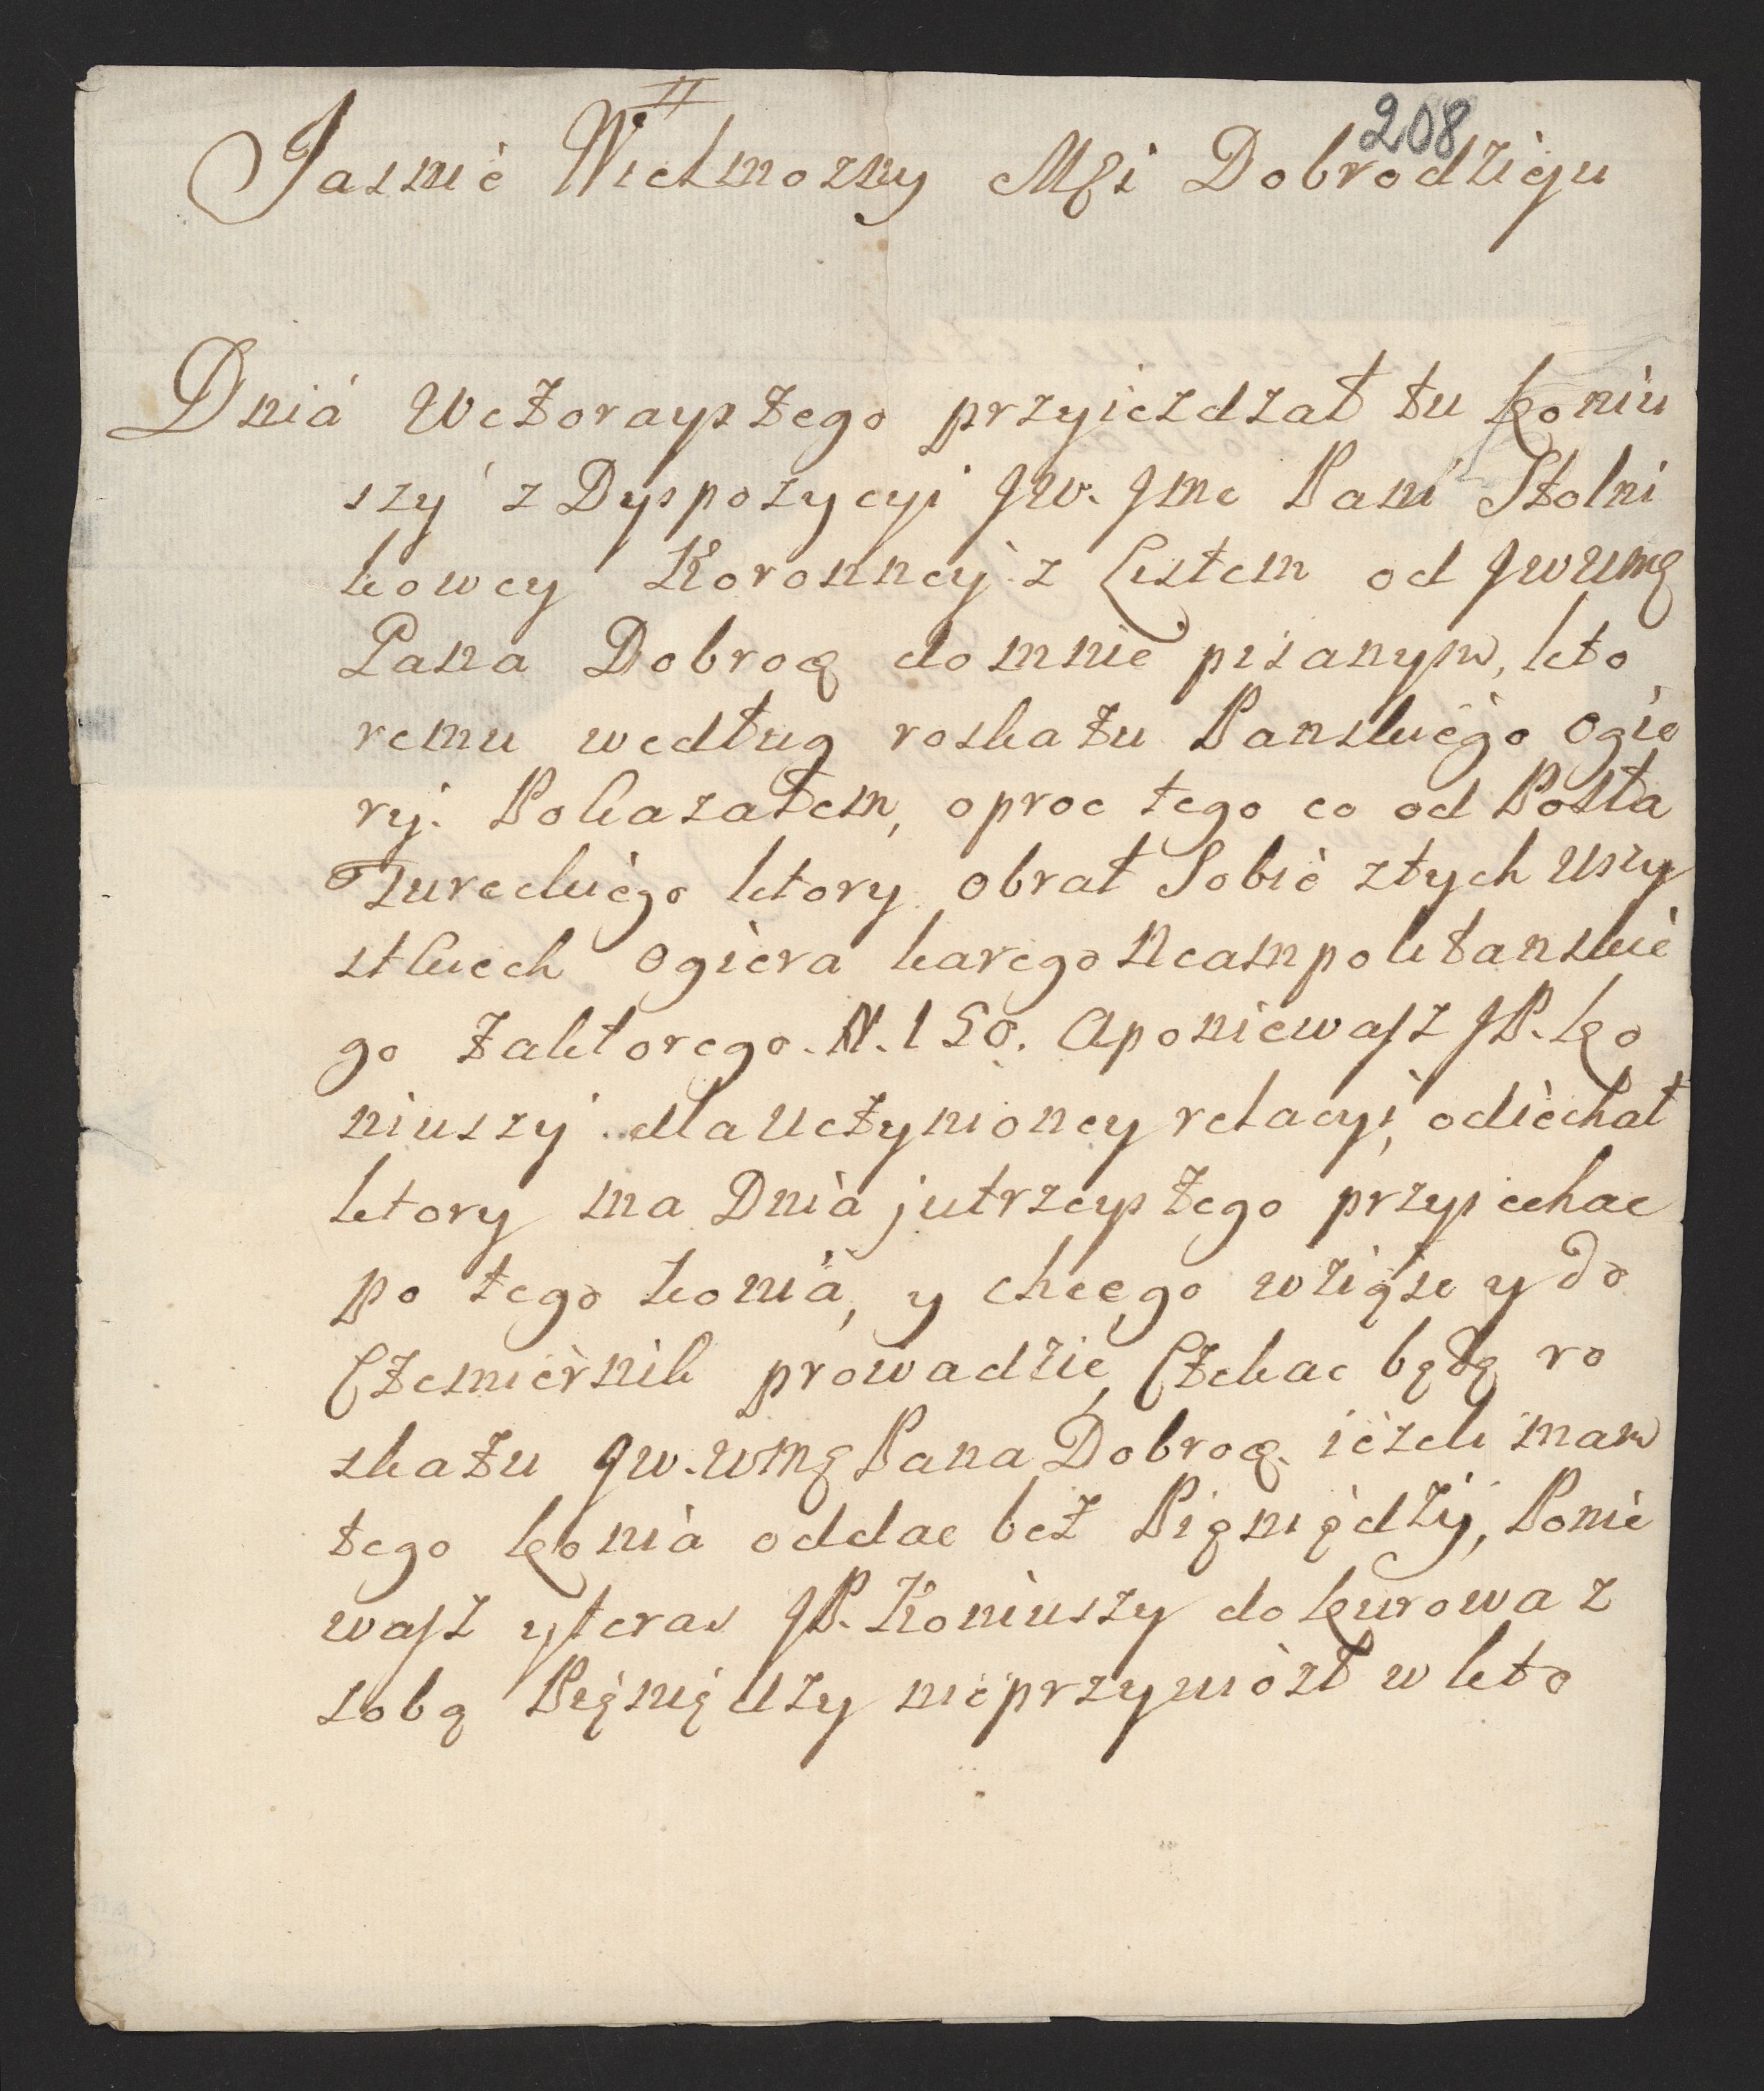 II
208
Jasnie Wielmozny Mći Dobrodzieju
Dnia Wczorayszego przyiezdzał tu koniu
szy z Dyspozycyi JW. Jmc Pani Stolni
kowey Koronney z Listem od JWWmę
Pana Dobroę do mnie pisanym, kto
remu według roskazu Panskiego ogie
ry Pokazałem, oproc tego co od Posła
Tureckiego ktory obrał Sobie ztych wszy
stkiech ogiera karego Neampolitanskie
go taktorego N. 150. Aponiewasz JP. ko
niuszy dla uczynioney relacyi, odiechał
ktory ma Dnia jutrzeyszego przyiechac
po tego konia, y chce,go wziąsc y do
Czemiernik prowadzic, Czekac będę ro
skazu JW. WMę Pana Dobroę. iezeli mam
tego konia oddac bez Pięniędzy, Ponie
wasz y teras JP. Koniuszy do kurowa z
sobą Pięniędzy nieprzywiozł w kto